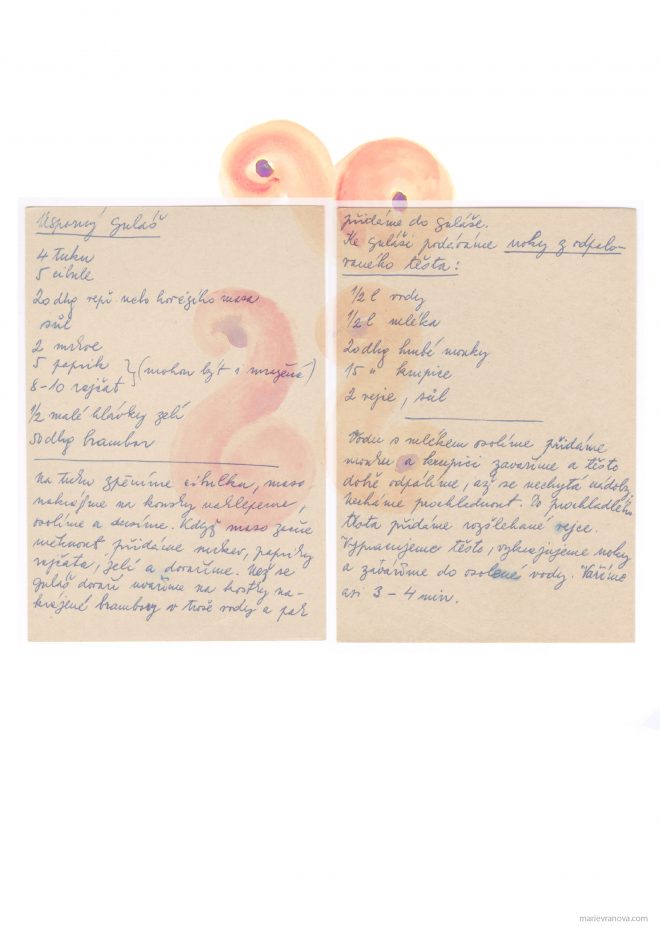 Úsporný guláš
4 tuku
5 cibule
20 dkg vepř. nebo hovězího masa
sůl
2 mrkve
5 paprik
8-10 rajčat } (mohou být i mražené)
1/2 malé hlávky zelí
50 dkg brambor
Na tuku zpěníme cibulku, maso
nakrájíme na kousky naklepeme,
osolíme a dusíme. Když maso začne
měknout, přidáme mrkev, papriky
rajčata, zelí a dovaříme. Než se
guláš dovaří uvaříme na kostky na-
krájené brambory v troše vody a pak
přidáme do guláše.
Ke guláši podáváme noky z odpalo-
vaného těsta:
1/2 l vody
1/2 l mléka
20 dkg hrubé mouky
15 " krupice
2 vejce, sůl
Vodu s mlékem osolíme přidáme
mouku a krupici zavaříme a těsto
dobře odpálíme, až se nechytá nádoby.
Necháme prochladnout. Do prochladlého
těsta přidáme rozšlehané vejce.
Vypracujeme těsto, vykrajujeme noky
a zaváříme do osolené vody. Vaříme
asi 3 - 4 min.
marievranova.com